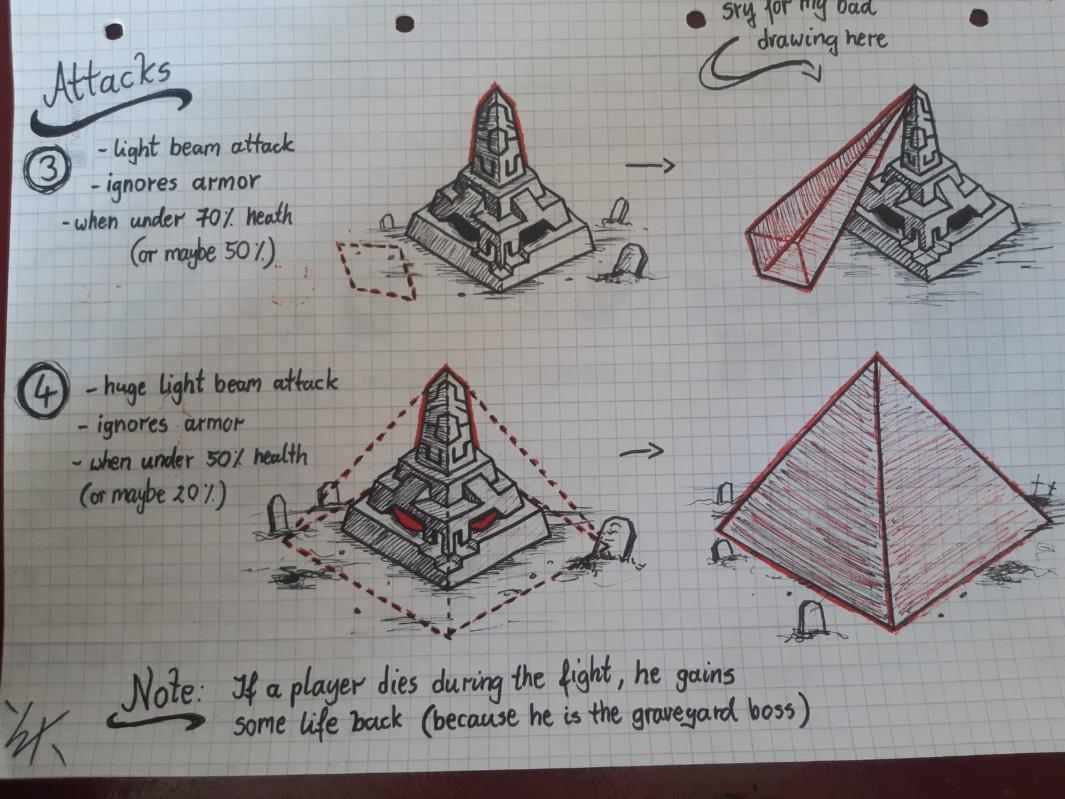 sry for my bad
drawing here
Attacks
3
- light beam attack
- ignores armor
- when under 70% heath
(or maybe 50%)
4
- huge light beam attack
- ignores armor
- when under 50% health
(or maybe 20%)
Note: If a player dies during the fight, he gains
some life back (because he is the graveyard boss)